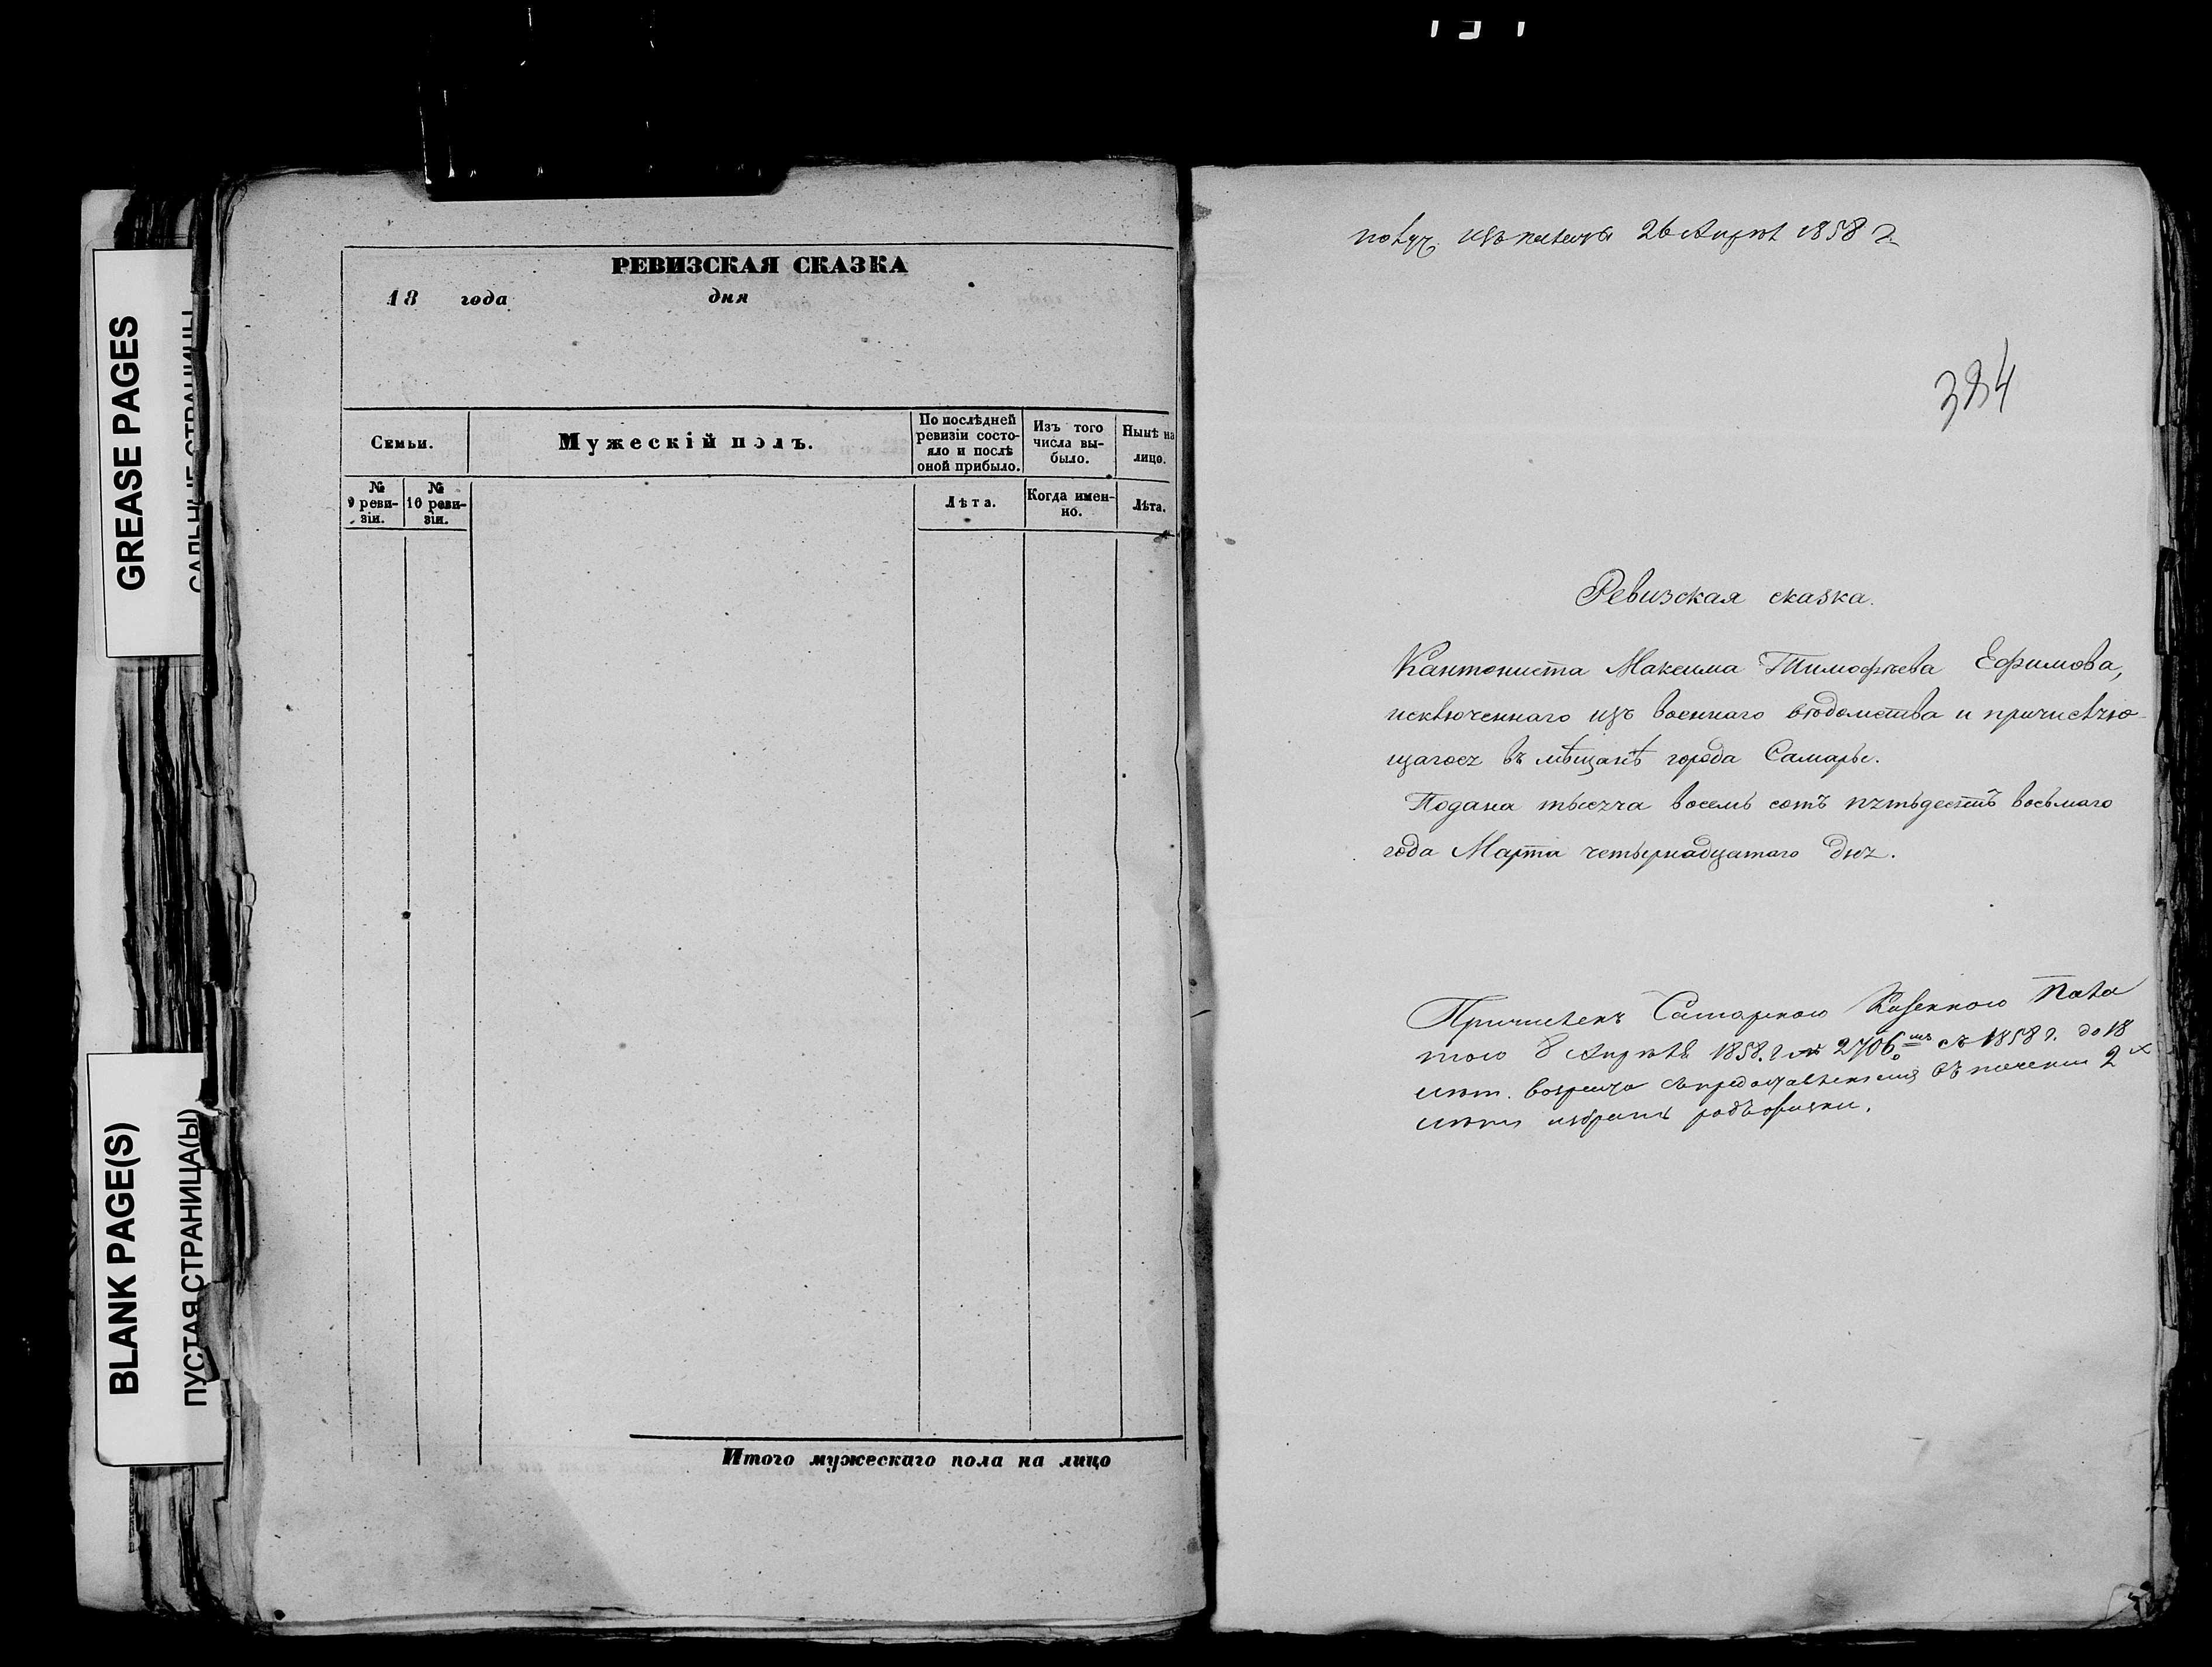 GREASE PAGES
САЛЬНЫЕ СТРАНИЦЫ
BLANK PAGE(S)
ПУСТАЯ СТРАНИЦА(Ы)
РЕВИЗСКАЯ СКАЗКА
18 года дня
Семьи.
Мужескій полъ.
По послѣдней
ревизіи состо-
яло и послѣ
оной прибыло.
Изъ того
числа вы-
было.
Нынѣ на
лицо.
№
9 реви-
зіи.
№
10 реви-
зіи.
Лѣта.
Когда имен-
но.
Лѣта.
Итого мужескаго пола на лицо
получ. изъ палаты 26 Апрѣл 1858 г.
384
Ревизская сказка.
Кантониста Максима Тимофѣева Ефимова,
исключеннаго изъ военнаго вѣдомства и причисляю-
щагося въ мѣщанѣ города Самары.
Подана тысяча восемь сотъ пятьдесятъ восьмаго
года Марта четырнадцатаго дня.
Причисленъ Самарскою Казенною Пала
тою 8 Апрѣля 1858. г № 2706 съ 1858 г. до 18
лѣт. возраста съ предоставленіемъ въ теченіи 2 х
лѣтъ избрать родъ жизни.